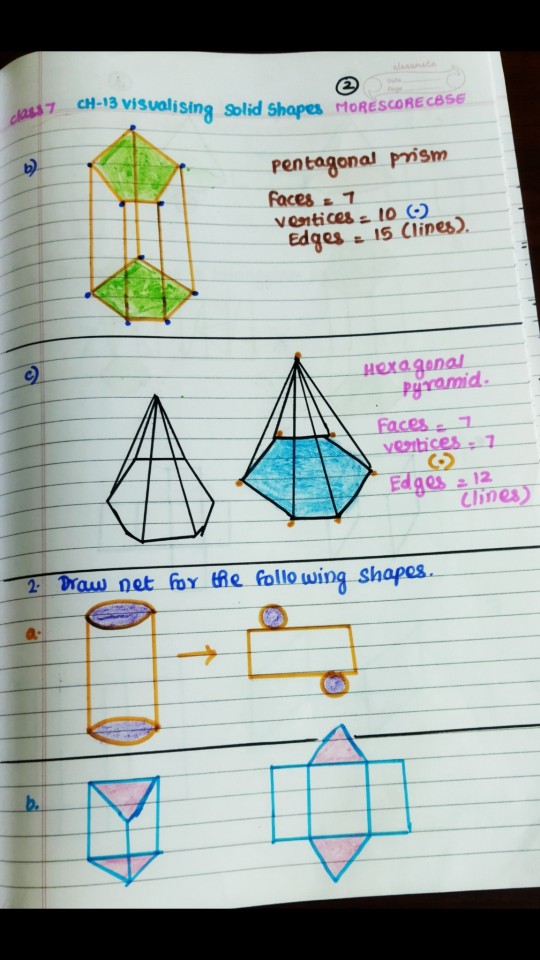 classmate
Date
Page
2
class 7 CH-13 visualising solid shapes MORESCORECBSE
b) Pentagonal prism
Faces = 7
vertices = 10 (•)
Edges = 15 (lines).
c) Hexagonal
pyramid.
Faces = 7
vertices = 7
(•)
Edges = 12
(lines)
2. Draw net for the following shapes.
a.
b.